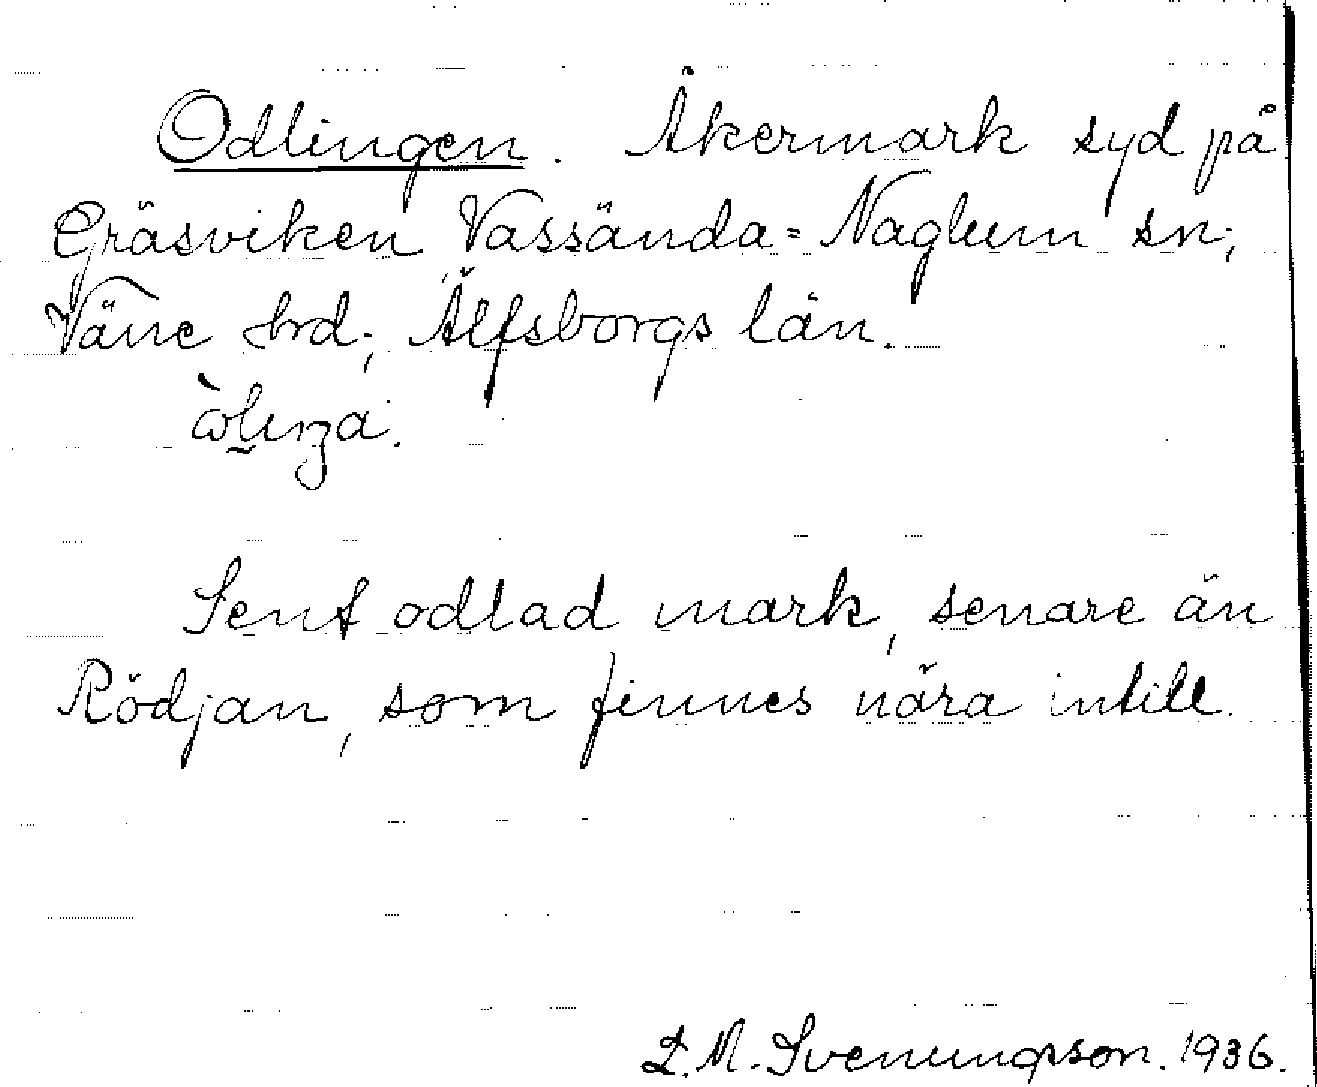 Odlingen. Åkermark syd på
Gräsviken Vassända=Naglum sn;
Väne hrd; Älfsborgs län.
Sent odlad mark, senare än
Rödjan, som finnes nära intill.
L.M. Svenungsson. 1936.